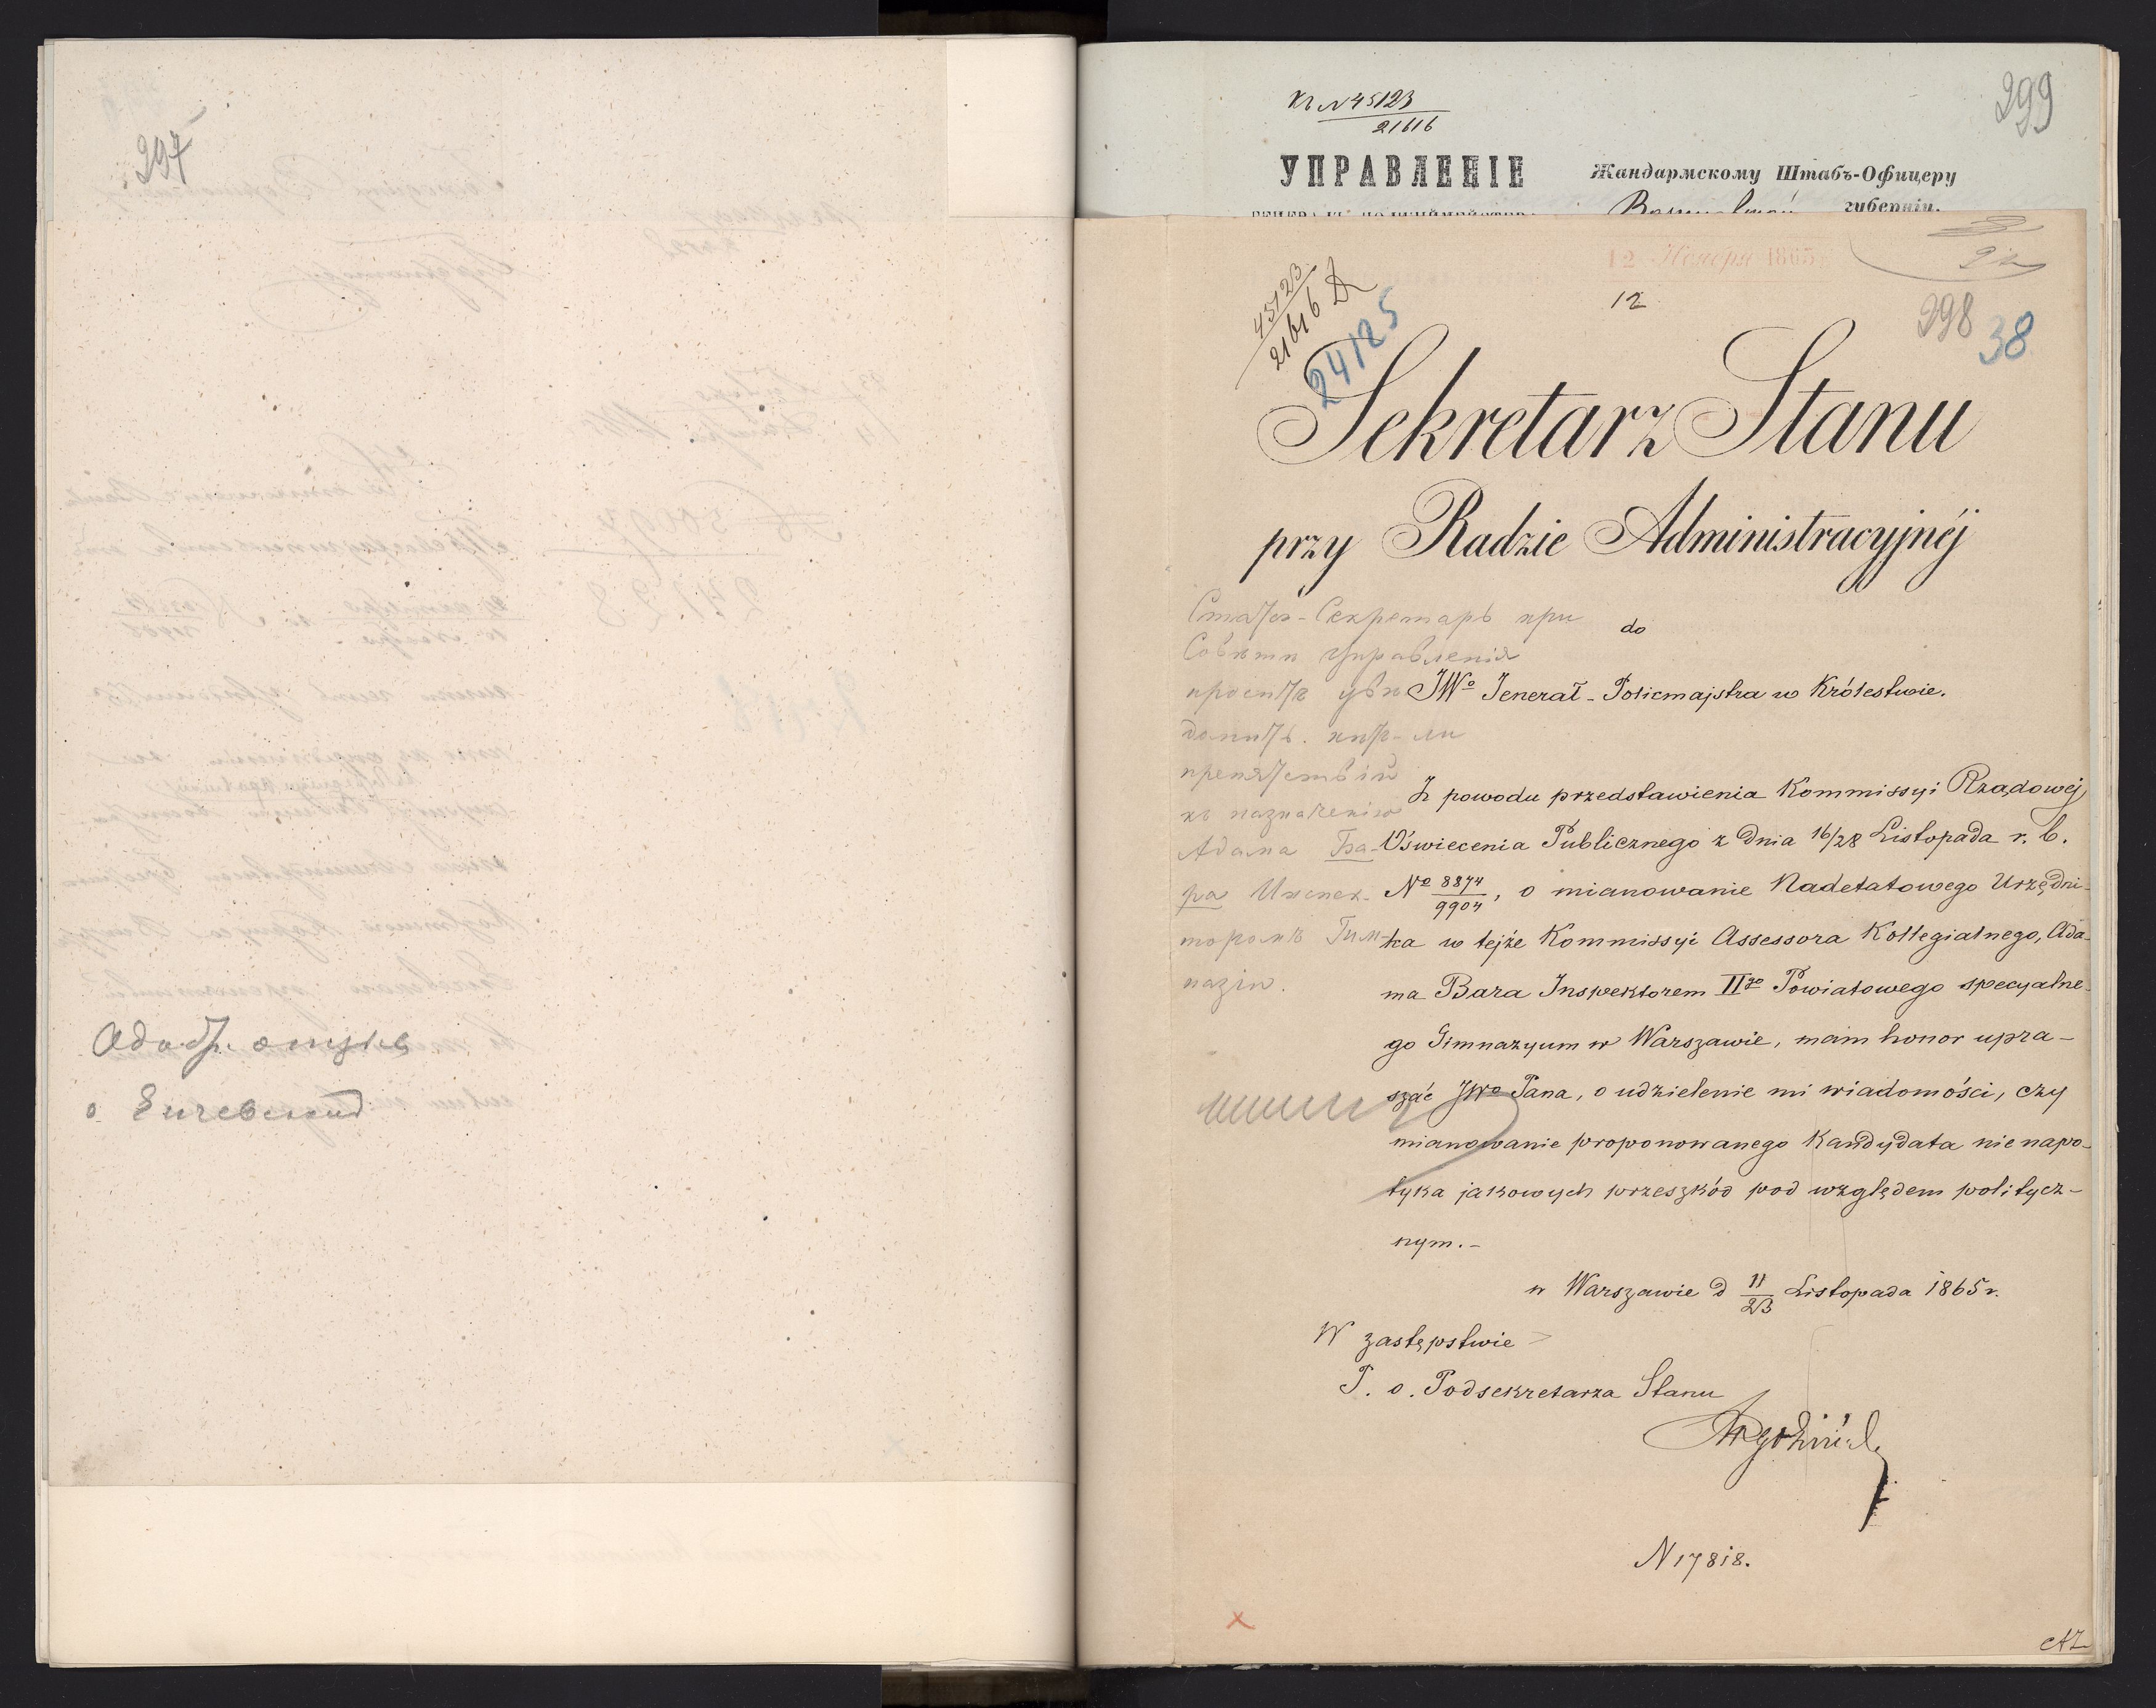 297
299
Къ N 45123
21616
УПРАВЛЕНІЕ
Жандармскому Штабъ-Офицеру
губерніи.
12 Ноября 1865
12
45123
21616
24125
298
38
Sekretarz Stanu
przy Radzie Administracyjnéj
do
JWº Jenerał-Policmajstra w Królestwie.
Статсъ-Секретарь при
Совѣтѣ Управленія
проситъ увѣ
домить. нѣтъ-ли
препятствій
къ назначенію
Адама Ба-
ра Инспек-
торомъ Гим-
назіи.
Z powodu przedstawienia Kommissyi Rządowej
Oświecenia Publicznego z dnia 16/28 Listopada r. b.
Nº 8874/9904, o mianowanie Nadetatowego Urzędni-
ka w tejże Kommissyi Assessora Kollegialnego, Ada-
ma Bara Inspektorem IIgo Powiatowego specyalne-
go Gimnazyum w Warszawie, mam honor upra-
szać JWº Pana, o udzielenie mi wiadomości, czy
mianowanie proponowanego Kandydata nie napo-
tyka jakowych przeszkód pod względem politycz-
nym.-
w Warszawie d 11/23 Listopada 1865 r.
W zastępstwie
P. o. Podsekretarza Stanu
N 17818.